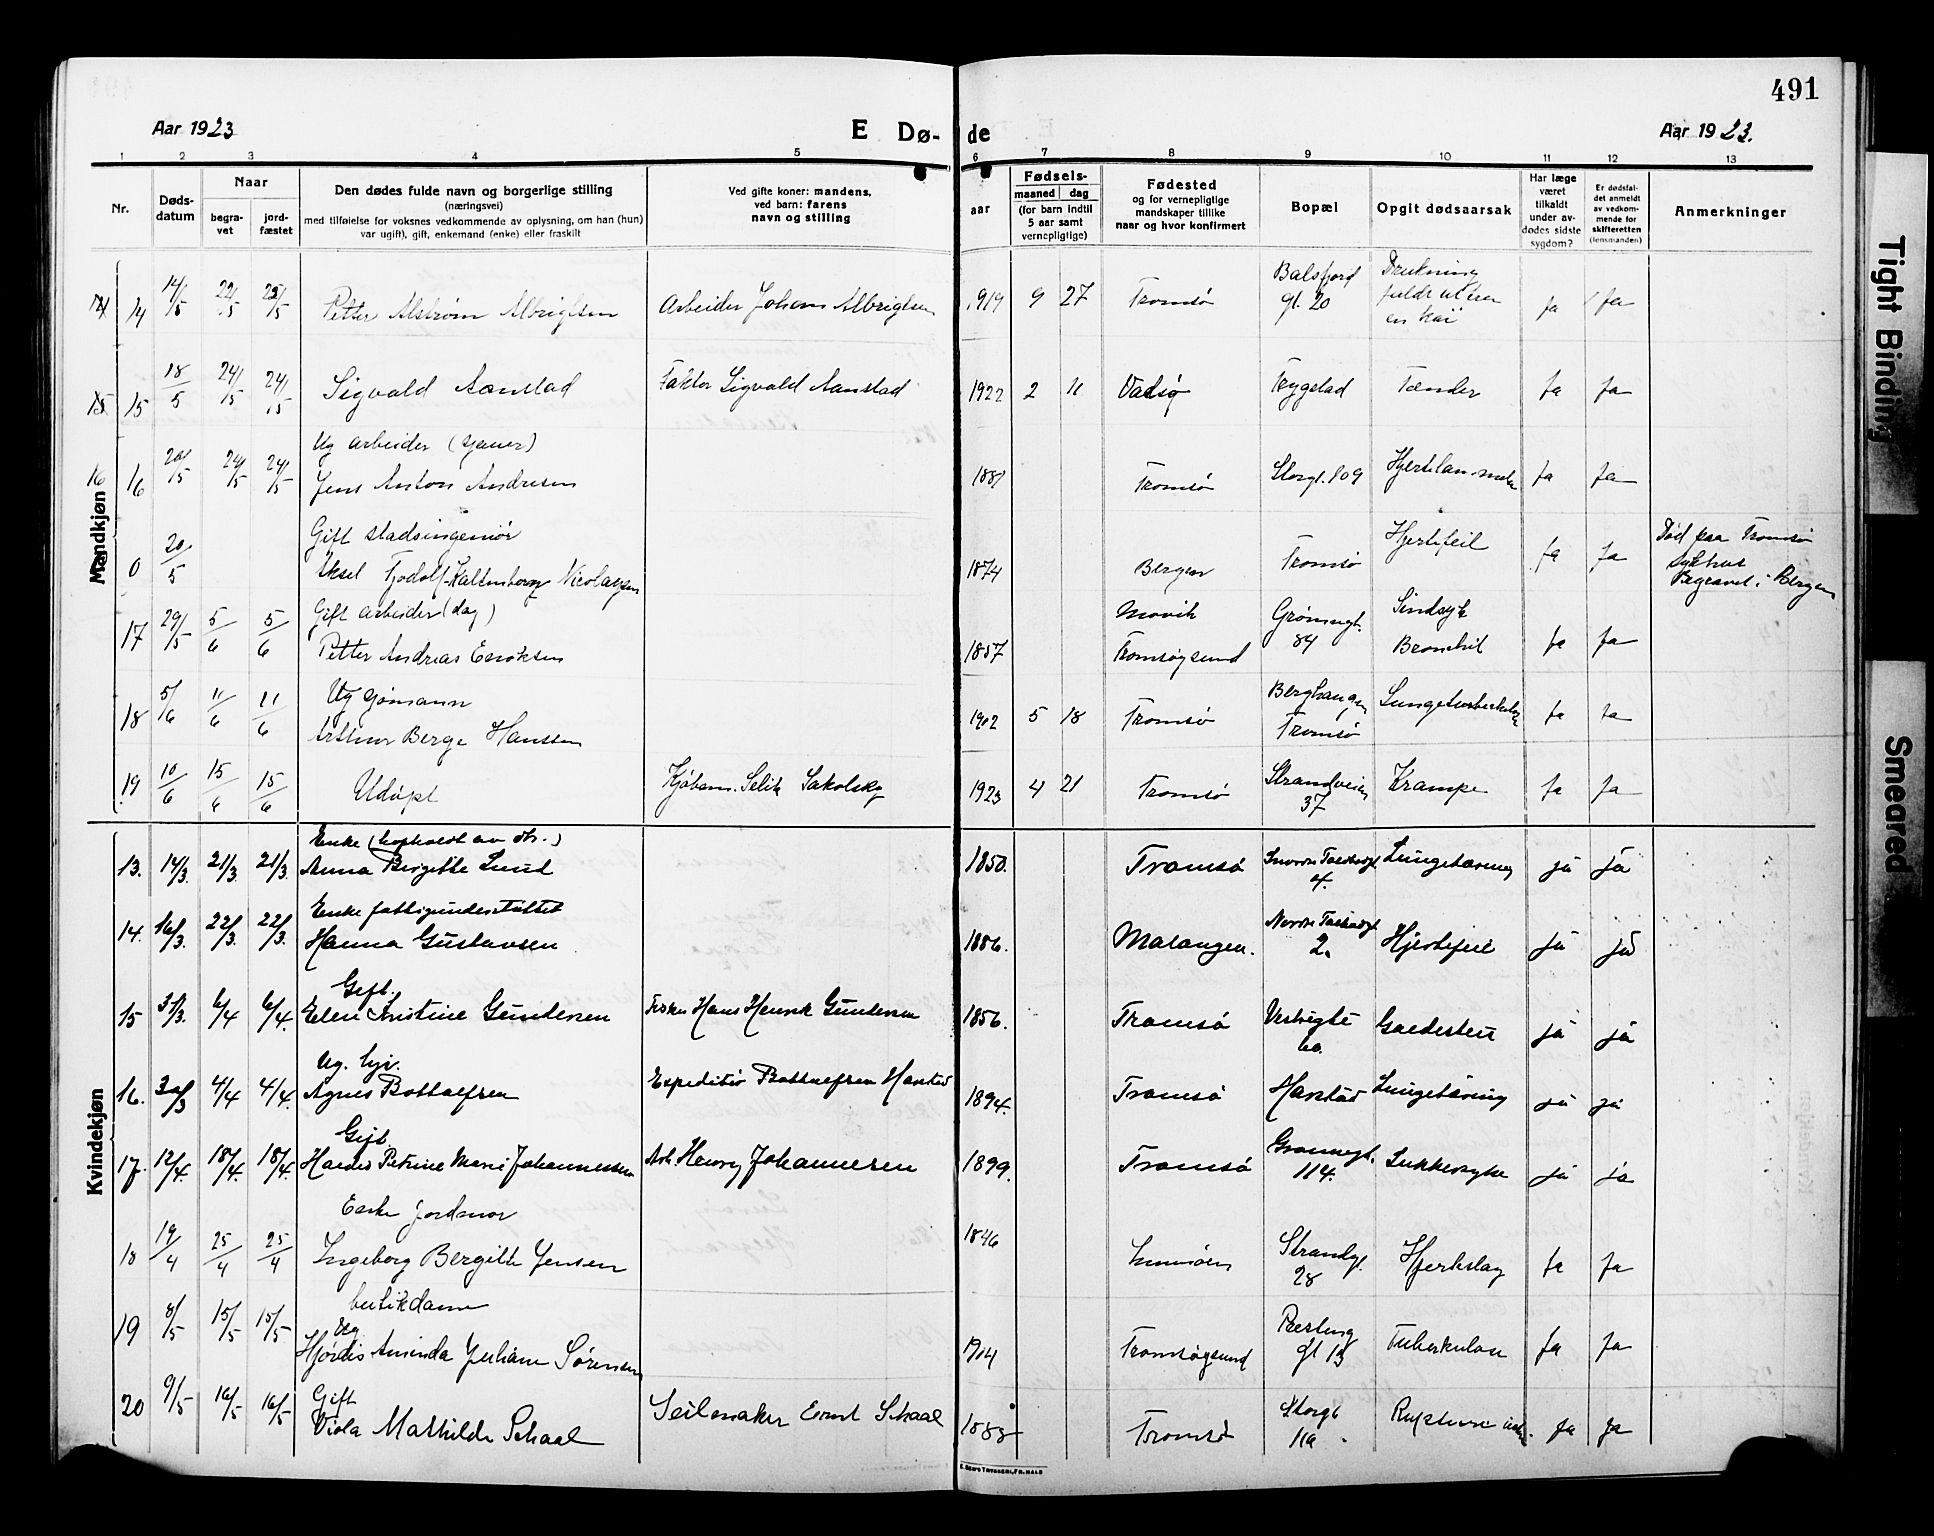 491
Aar 1923
E Dø-
de
Aar 1923.
1 2 3 4 5 6 7 8 9 10 11 12 13
Nr.
Døds-
datum
Naar
begra-
vet
jord-
fæstet
Den dødes fulde navn og borgerlige stilling
(næringsvei)
med tilføielse for voksnes vedkommende av oplysning, om han (hun)
var ugift), gift, enkemand (enke) eller fraskilt
Ved gifte koner: mandens,
ved barn: farens
navn og stilling
aar
Fødsels-
maaned dag
(for barn indtil
5 aar samt
vernepligtige)
Fødested
og for vernepligtige
mandskaper tillike
naar og hvor konfirmert
Bopæl
Opgit dødsaarsak
Har læge
været
tilkaldt
under av-
dødes sidste
sygdom?
Er dødsfal-
det anmeldt
av vedkom-
mende for
skifteretten
(lensmanden)
Anmerkninger
Mandkjøn
14 14/5 22/5 22/5 Petter Alstrøm Albrigtsen Arbeider Johans Albrigtsen 1919 9 27 Tromsø Balsfjord gt. 20 Drukning fuldt ut en kai ja ja
15 15 18/5 24/5 24/5 Sigvald Aanstad Faktor Sigvald Aanstad 1922 2 11 Vadsø Trygstad Tænder ja ja
16 16 20/5 24/5 24/5 Ug arbeider (sjauer)
Jens Anton Andresen 1881 Tromsø Storgt. 109 ja ja
0 20/5 Gift stadsingeniør
Aksel Tjodolf Kaltenborg Nicolaysen 1874 Bergen Tromsø Hjertefeil ja ja Død paa Tromsø sykehus Begravet i Bergen
17 29/5 5/6 5/6 Gift arbeider (dag)
Petter Andreas Enoksen 1857 Movik Tromsøysund Grønnegt. 84 Sindsyk Bronchit ja ja
18 5/6 11/6 11/6 Ug sjømann
Arthur Berge Hanssen 1902 5 18 Tromsø Berghaugen Tromsø Lungetuberkulose ja ja
19 10/6 15/6 15/6 Udøpt Kjøbm. Selik Sakolsky 1923 4 21 Tromsø Strandveien 37 Krampe ja ja
Kvindekjøn
13. 14/3. 21/3. 21/3. Enke
Anna Birgitte Lund 1850. Tromsø 4. Lungetæring ja ja
14. 16/3. 22/3. 22/3. Enke fattigunderstøttet
Hanna Gustavsen 1856. Malangen. 2. Hjertefeil ja ja
15 31/3. 6/4 6/4. Gift.
Elen Kristine Gundersen Fisker Hans Henrik Gundersen 1856. Tromsø Vestregte 60. Galdesten ja ja
16. 30/3 4/4 4/4. Ug. hjv.
Agnes Bottolfsen Expeditør Bottolfsen Harstad 1894. Tromsø Harstad Lungetæring ja ja
17. 12/4. 18/4. 18/4. Gift.
Haldis Petrine Marie Johannessen Arb. Henry Johannesen 1899. Tromsø Grønnegt. 114. Sukkersyke ja ja
18 19/4 25/4 25/4 Enke Jordmor
Ingeborg Bergitte Jensen 1846 Strandgt. 28 Hjerteslag ja ja
19 8/5 15/5 15/5 butikdame
Ug
Hjørdis Aminda Juliane Sørensen 1904 Tromsøysund Presteng gt 13 Tuberkulose ja ja
20 9/5 16/5 16/5 Gift
Viola Mathilde Schaal Seilmaker Ernst Schaal 1888 Tromsø Storgt 11a ja ja
E. SEM'S TRYKKERI, FR.HALD
Tight Binding
Smeared